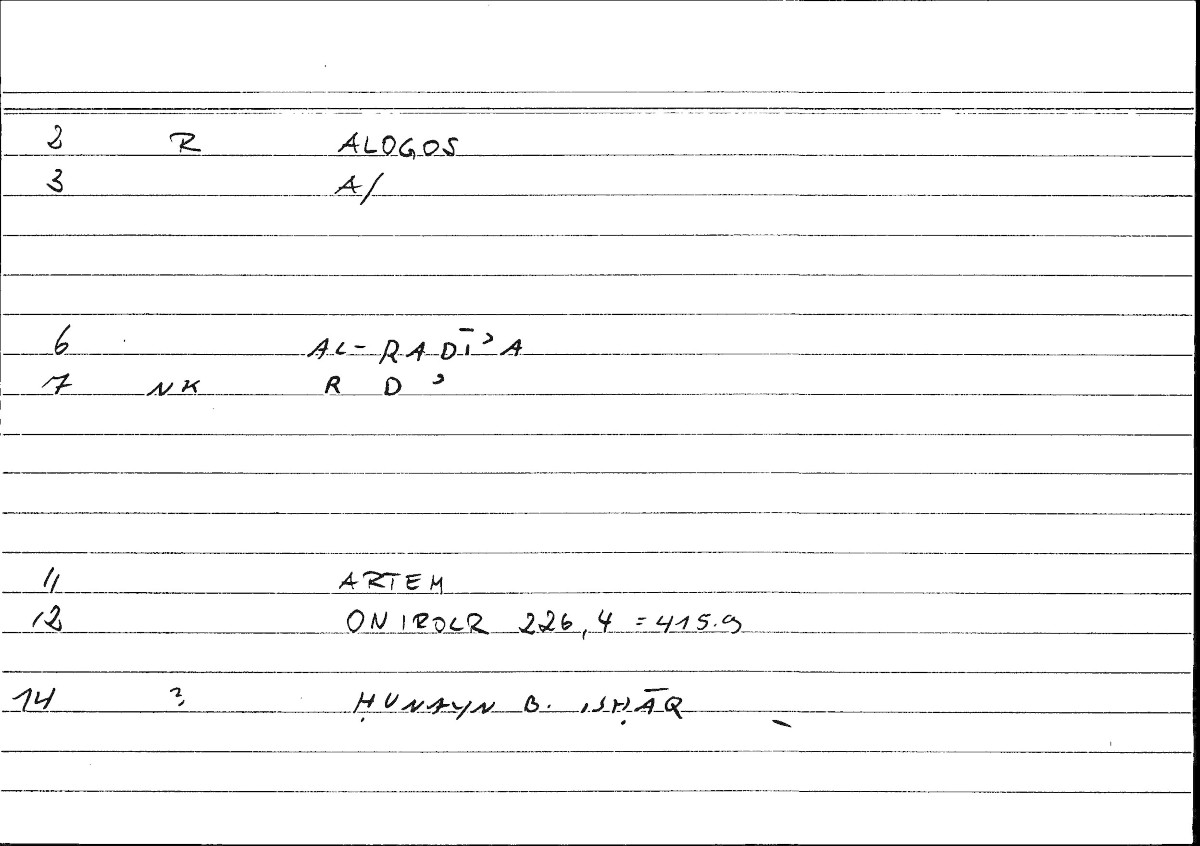 2 R ALOGOS
3 A/
6 AL-RADĪʾA
7 NK R D ʾ
11 ARTEM
12 ONIROCR 226,4 = 415.9
14 ? ḤUNAYN B. ISḤĀQ